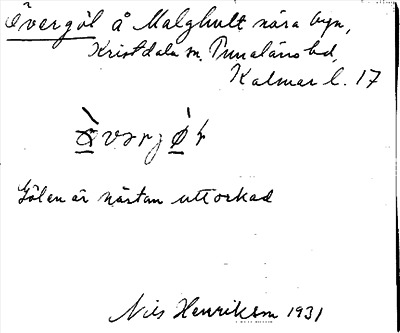 Övergöl å Malghult nära byn,
Kristdala sn, Tunaläns hd,
Kalmar l. 17
Gölen är nästan uttorkad
Nils Henrikson 1931